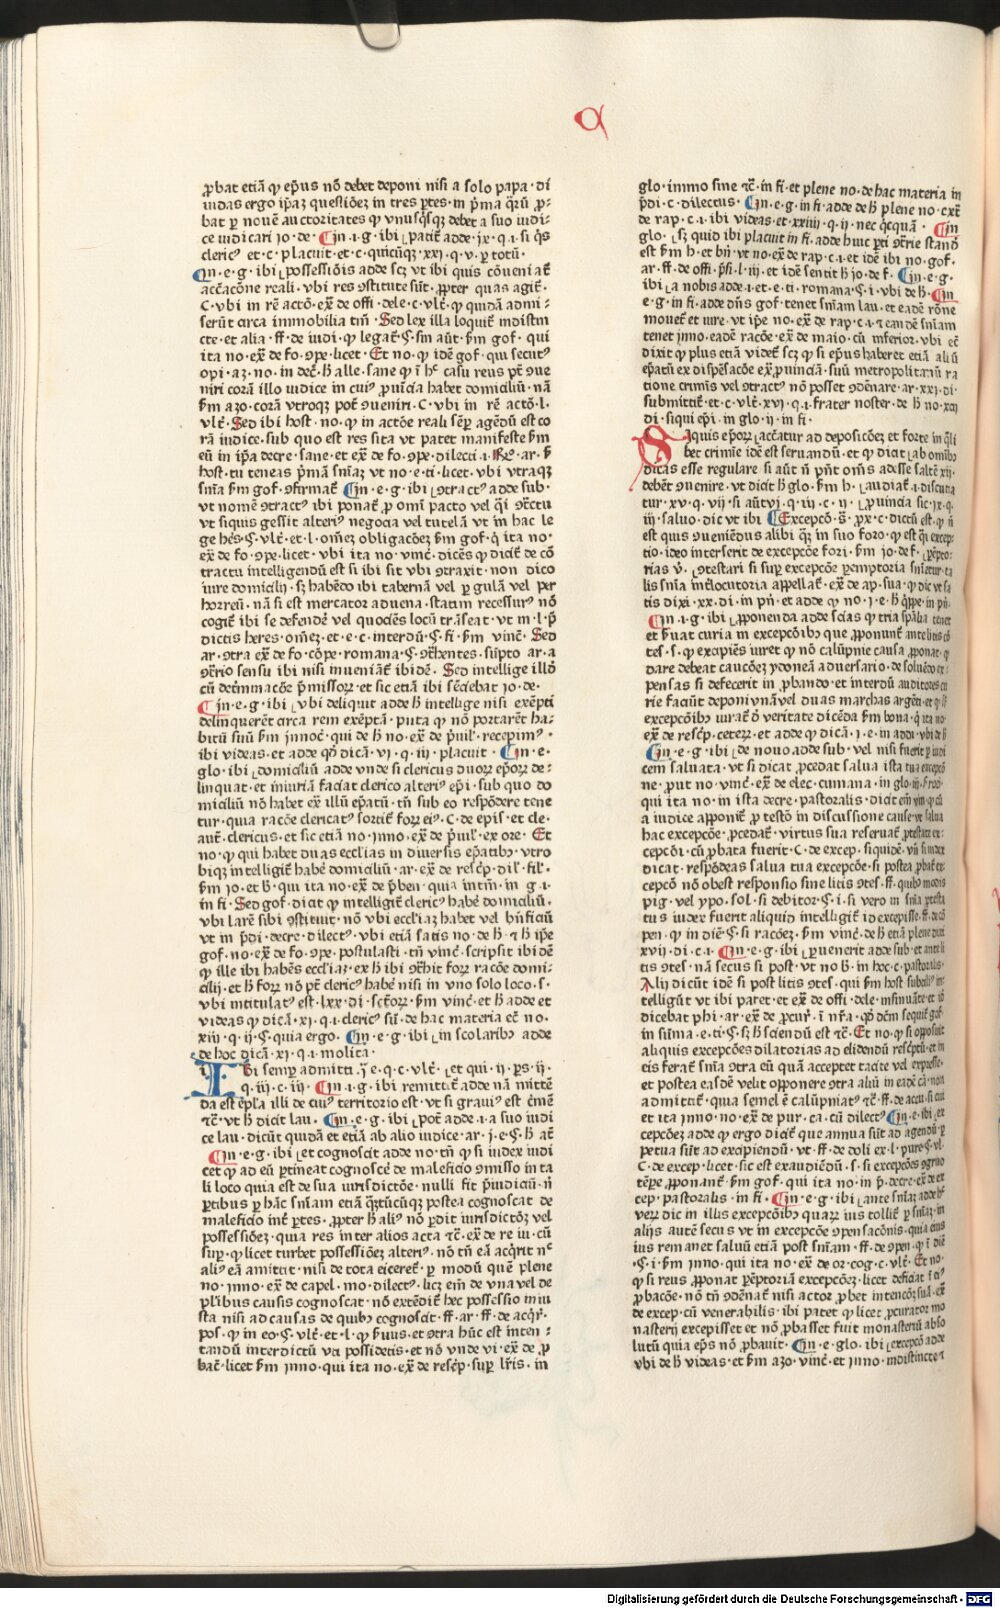 ꝓbat etiā ꝙ ep̄us nō debet deponi nisi a solo papa · di
uidas ergo ip̄az questiōez in tres ꝑtes · in p̄ma q̄rū ꝓ-
bat ꝑ nouē auctoritates ꝙ vnusq̄sqz debet a suo iudi-
ce iudicari jo · de · Jn · i · g · ibi patit̄ adde · ix · q · i · si q̄s
cleric⁹ et · c · placuit · et · c · quicūqz · xxi · q · v · ꝑ totū ·
Jn · e · g · ibi possessiōis adde scz vt ibi quis cōueniat̄
acc̄acōne reali · vbi res ꝯstitute sūt · ꝓpter quas agit̄ ·
C · vbi in rē actō · ex̄ de offi · dele · c · vlt̄ · ꝙ quidā admi-
serūt circa immobilia tm̄ · Sed lex illa loquit̄ indistin
cte · et alia · ff · de iudi · ꝙ legat̄ · ꝼm aūt · ꝼm gof · qui
ita no · ex̄ de fo · ꝯpe · licet · Et no · ꝙ idē gof · qui secut⁹
opi · az · no · in dec̄ · h̄ alle · sane ꝙ ī h̄c casu reus pt̄ ꝯue
niri corā illo iudice in cui⁹ ꝓuīcia habet domiciliū · nā
ꝼm azo · corā vtroqz pot̄ ꝯueniri · C · vbi in rē actō · l ·
vlt̄ · Sed ibi host · no · ꝙ in actōe reali sēꝑ agēdū est co
rā iudice · sub quo est res sita vt patet manifeste ꝼm
eū in ip̄a decre · sane · et ex̄ de fo · ꝯpe · dilecti · i · Rº · ar · ꝼ
host · tu teneas p̄mā sniāz vt no · e · ti · licet · vbi vtraqz
snīa ꝼm gof · ꝯfirmat̄ Jn · e · g · ibi ꝯtract⁹ adde sub ·
vt nomē ꝯtract⁹ ibi ponat̄ ꝓ omī pacto vel q̄i ꝯtc̄tu
vt siquis gessit alteri⁹ negocia vel tutelā vt in hac le
ge · heṣ · Ꞩ · vlt̄ · et · l · om̄ez obligacōez ꝼm gof · q̄ ita no ·
ex̄ de fo · ꝯpe · licet · vbi ita no · vinc̄ · dicēs ꝙ dicāt̄ de cō
tractu intelligendū est si ibi sit vbi ꝯtraxit · non dico
iure domicilij · sꝫ habēdo ibi tabernā vel ꝑgulā vel per
horreū · nā si est mercator aduena · statim recessur⁹ nō
cogit̄ ibi se defendē vel quociēs locū trāseat · vt in · l · p̄
dictis heres · om̄ez · et · e · c · interdū · Ꞩ · fi · ꝼm vinc̄ · Sed
ar · ꝯtra ex̄ de fo · cōpe · romana · Ꞩ · ꝯt̄hentes · sūpto ar · a
ꝯt̄rio sensu ibi nisi inueniāt̄ ibidē · Sed intellige illō
cū det̄mīacōe p̄missorꝫ · et sic etiā ibi sēc̄iebat jo · de ·
Jn · e · g · ibi vbi deliquit adde h̄ intellige nisi exēpti
delinquerēt circa rem exēptā · puta ꝙ nō portarēt ha-
bitū suū ꝼm innoc̄ · qui de h̄ no · ex̄ de p̄uil̓ · recepim⁹ ·
ibi videas · et adde qd̄ dicā · vj · q · iij · placuit · Jn · e ·
glo · ibi domiciliū adde vnde si clericus duorꝫ ep̄orꝫ de-
linquat · et iniuriā faciat clerico alteri⁹ ep̄i · sub quo do
miciliū nō habet ex illū ep̄atū · tn̄ sub eo respōdere tene
tur · quia racōe clericat⁹ sortit̄ forꝫ ei⁹ · C · de epis · et cle ·
aut̄ · clericus · et sic etiā no · jnno · ex̄ de p̄uil̓ · ex ore · Et
no · ꝙ qui habet duas eccl̓ias in diuersis ep̄atibꝫ · vtro
biqz intelligit̄ habē domiciliū · ar · ex̄ de resc̄p · dil̓ · fil̓ ·
ꝼm jo · et h̄ · qui ita no · ex̄ de p̄ben · quia intm̄ · in g · i ·
in fi · Sed gof · diat ꝙ intelligit̄ cleric⁹ habē domiciliū ·
vbi larē sibi ꝯstituit · nō vbi eccl̓iaz habet vel bn̄ficiū
vt in p̄di · decre · dilect⁹ · vbi etiā satis no · de h̄ · ⁊ h̄ ip̄e
gof · no · ex̄ de fo · ꝯpe · postulasti · tn̄ vinc̄ · scripsit ibi dē
ꝙ ille ibi habēs eccl̓iaz · ex h̄ ibi ꝯt̄hit forꝫ racōe domi-
cilij · et h̄ forꝫ nō pt̄ cleric⁹ habē nisi in vno solo loco · s ·
vbi intitulat⁹ est · lxx · di · sc̄torꝫ · ꝼm vinc̄ · et h̄ adde et
videas ꝙ dicā · xj · q · i · cleric⁹ · sū · de hac materia ec̄ no ·
xiij · q · ij · Ꞩ · quia ergo · Jn · e · g · ibi in scolaribꝫ adde
de hoc dicā · xj · q · i · molita ·
Ibi semꝑ admitti · ȳ · e · q · c · vlt̄ · et qui · ij · ꝑs · ij ·
q · iij · c · iij · Jn · i · g · ibi remittit̄ adde nā mittē
da est ep̄l̓a illi de cui⁹ territorio est · vt si grauis est c̄mē
⁊c̄ · vt h̄ dicit lau · Jn · e · g · ibi pot̄ adde · i · a suo iudi
ce lau · dicūt quidā et etiā ab alio iudice · ar · j · e · Ꞩ · h̄ at̄
Jn · e · g · ibi et cognoscat adde no · tn̄ ꝙ si iudex iudi
cet ꝙ ad eū ꝑtineat cognoscē de maleficio ꝯmisso in ta
li loco quia est de sua iurisdictōe · nulli fit p̄iudiciū · n̄
ꝑtibus ꝑ hāc sniām etiā q̄tūcūqz postea cognoscat de
maleficio int̄ ꝑtes · ꝓpter h̄ ali⁹ nō ꝑdit iurisdictōz vel
possessiōez · quia res inter alios acta ⁊c̄ · ex̄ de re iu · cū
suꝑ · ꝙ licet turbet possessiōez alteri⁹ · nō tn̄ eā acq̄rit nᶜ
ali⁹ eā amittit · nisi de tota eiceret̄ · ꝑ modū quē plene
no · jnno · ex̄ de capel · mo · dilect⁹ · licz em̄ de vna vel de
pl̓ibus causis cognoscat · nō extēdit̄ hec possessio iniu
sta nisi ad causas de quibꝫ cognoscit · ff · ar · ff · de acq̄r ·
pos · ꝙ in eo · Ꞩ · vlt̄ · et · l · ꝙ ꝼuus · et ꝯtra hūc est inten-
tandū interdictū vti possidetis · et nō vnde vi · ex̄ de ꝓ
bac̄ · licet ꝼm jnno · qui ita no · ex̄ de resc̄p · suꝑ lr̄is · in
glo · immo sine ⁊c̄ · in fi · et plene no · de hac materia in
p̄di · c · dilectus · Jn · e · g · in fi · adde de h̄ plene no · ext̄
de rap · c · i · ibi videas · et xxiij · q · ij · nec q̄cquā · Jn
glo · sꝫ quid ibi placuit in fi · adde huic ꝑti ꝯt̄rie standū
est ꝼm h · et bn̄ · vt no · ex̄ de rap · c · i · et idē ibi no · gof ·
ar · ff · de offi · p̄si · l · iij · et idē sentit h̄ jo · de f · Jn · e · g ·
ibi a nobis adde · i · et · e · ti · romana · Ꞩ · i · vbi de h̄ · Jn
e · g · in fi · adde dn̄s gof · tenet sniām lau · et eadē rōne
mouet̄ et iure · vt ip̄e no · ex̄ de rap · c · i · ⁊ eandē sniām
tenet jnno · eadē racōe · ex̄ de maio · cū inferior · vbi ec̄
dixit ꝙ plus etiā videt̄ scz ꝙ si ep̄us haberet etiā aliū
ep̄atū ex dispēsacōe ex ꝓuinciā · suū metropolitanū ra
tione crimīs vel ꝯtract⁹ nō posset ꝯdēnare · ar · xxj · di ·
submittit̄ · et · c · vlt̄ · xvj · q · i · frater noster · de h̄ no · xxj
di · siqui ep̄i · in glo · ij · in fi ·
Siquis ep̄orꝫ acc̄atur ad deposicōez et forte in q̄li
bet crimīe idē est seruandū · et ꝙ dicit ab omībꝫ
dicas esse regulare · si aūt n̄ pn̄t om̄s adesse saltē xij ·
debēt ꝯuenire · vt dicit h̄ glo · ꝼm h · audiat̄ · i · discutia
tur · xv · q · vij · si aūt vj · q · iij · c · ij · ꝓuincia sic · ix · q ·
iij · saluo · dic vt ibi Excepcō · s̄ · ꝓx · c · dictū est · ꝙ n̄
est quis ꝯueniēdus alibi q̄ꝫ in suo foro · ꝙ est q̄i excep-
tio · ideo interserit de excepcōe fori · ꝼm jo · de f · ꝑēpto-
rias v̄ · ꝯtestari si suꝑ excepcōe ꝑemptoria snīetur · ta
lis snīa int̄locutoria appellat̄ · ex̄ de ap · sua · ꝙ dic vt sa
tis dixi · xx · di · in pn̄ · et adde ꝙ no · j · e · h̄ q̄ppe · in pn̄ ·
Jn · i · g · ibi ꝓponenda adde scias ꝙ tria sp̄alia tenet
et ꝼuat curia in excepcōibꝫ que ꝓponunt̄ ante litis cō
tes̄ · s · ꝙ excipiēs iuret ꝙ nō calūpnie causa ꝓponat · ꝙ
dare debeat caucōez ydoneā aduersario · de soluēdo ex-
pensas si defecerit in ꝓbando · et interdū auditores cu
rie faciūt deponi vnā vel duas marchas argēti · et ꝙ si
excepcōibꝫ iurat̄ d̓ veritate dicēda ꝼm bona · q̄ ita no ·
ex̄ de resc̄p · ceterꝫ · et adde ꝙ dicā · j · e · in addi · vbi de h̄
Jn · e · g · ibi de nouo adde sub · vel nisi fuerit ꝑ iudi
cem saluata · vt si dicat ꝓcedat salua ista tua excepcō
ne · put no · vinc̄ · ex̄ de elec · cumana · in glo · iij ·
qui ita no · in ista decre · pastoralis · dicit em̄ vin · ꝙ cū
a iudice apponit̄ ꝓ testō in discussione cause · vt salua
hac excepcōe · ꝓcedat̄ · virtus sua reseruat̄ ꝓtestate ex-
cepcōi · cū ꝓbata fuerit · C · de excep · siquidē · vn̄ si iudex
dicat · respōdeas salua tua excepcōe · si postea ꝓbat̄ ex-
cepcō nō obest responsio sine litis ꝯtes̄ · ff · quibꝫ modis
pig · vel ypo · sol · si debitor · Ꞩ · i · si vero in snīa ꝓtesta
tus iudex fuerit aliquid intelligit̄ id excepisse · ff · de cō
pen · ꝙ in diē · Ꞩ · si racōez · ꝼm vinc̄ · de h̄ etiā plene dixi
xvij · di · c · i · Jn · e · g · ibi ꝓuenerit adde sub · et ante li
tis ꝯtes̄ · nā secus si post · vt no · h̄ · in hoc · c · pastoralis ·
Alij dicūt idē si post litis ꝯtes̄ · qui ꝼm host subtili⁹ in-
telligūt vt ibi paret · et ex̄ de offi · dele · insinuāte · et iō
dicebat phi · ar · ex̄ de ꝓcur̄ · ī nr̄a · qd̄ dcm̄ sequit̄ gof ·
in sūma · e · ti · Ꞩ · sꝫ h̄ sciendū est ⁊c̄ · Et no · ꝙ si opposuit
aliquis excepcōes dilatorias ad elidendū resc̄ptū · et in
cis ferat̄ snīa ꝯtra eū quā acceptet tacite vel expresse ·
et postea easdē velit opponere ꝯtra aliū in eadē cā · non
admittit̄ · quia semel ē calūpniat⁹ ⁊c̄ · ff · de accu · si cui
et ita jnno · no · ex̄ de pur · ca · cū dilect⁹ Jn · e · ibi ex
cepcōez adde ꝙ ergo dicit̄ que annua sūt ad agendū ꝑ
petua sūt ad excipiendū · vt · ff · de doli ex · l · pure · Ꞩ · vl ·
C · de excep · licet · sic est exaudiēdū · s · si excepcōes ꝯgruo
tēꝑe ꝓponant̄ · ꝼm gof · qui ita no · in p̄ · decre · ex̄ de ex
cep · pastoralis · in fi · Jn · e · g · ibi ante sniāz adde h̄ᶜ
verꝫ dic in illis excepcōibꝫ quarꝫ ius tollit̄ ꝑ sniāz · in
alijs autē secus vt in excepcōe ꝯpensacōnis · quia eius
ius remanet saluū etiā post sniām · ff · de ꝯpen · ꝙ ī diē
· Ꞩ · i · ꝼm jnno · qui ita no · ex̄ de or · cog · c · vlt̄ · Et no ·
ꝙ si reus ꝓponat ꝑēptoriā excepcōez · licet deficiat ī ei⁹
ꝓbacōe · nō tn̄ ꝯdēnat̄ nisi actor ꝓbet intencōz suā · ex̄
de excep · cū venerabilis · ibi patet ꝙ licet ꝓcurator mo
nasterij excepisset et nō ꝓbasset fuit monasteriū abso
lutū quia ep̄s nō ꝓbauit · Jn · e · glo · ibi excepcō adde
vbi de h̄ videas · et ꝼm azo · vinc̄ · et jnno · indistincte ⁊
Digitalisierung gefördert durch die Deutsche Forschungsgemeinschaft - DFG